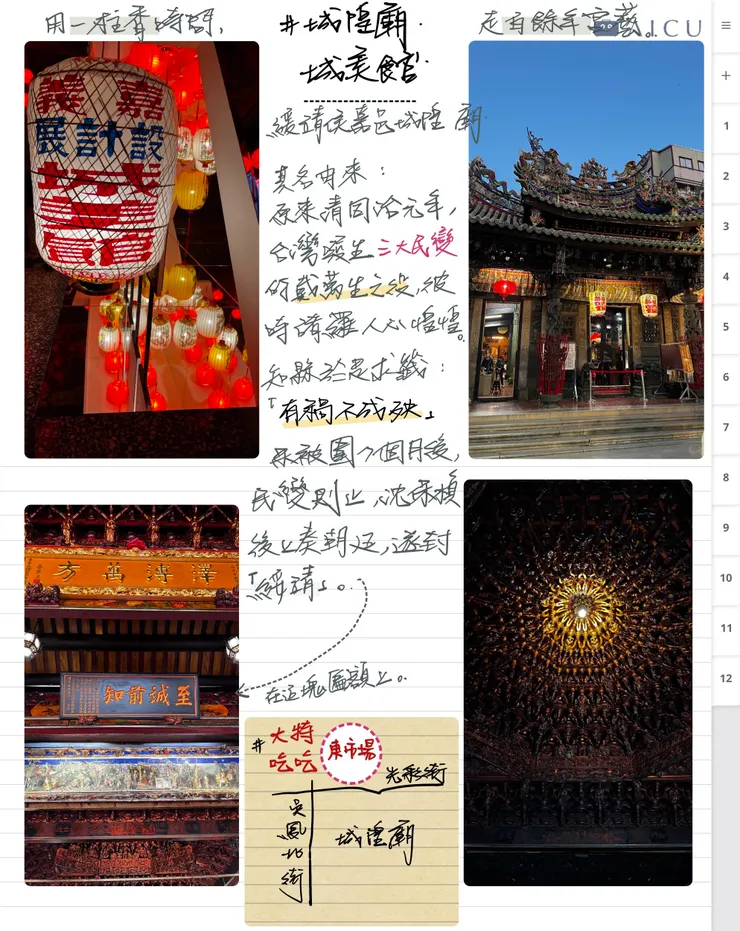 用一炷香時間,
#城隍廟.
城美館.
走百餘年宮藝。
JCU
嘉義
設計展
綏靖侯嘉邑城隍廟
其名由來:
原來清同治元年,
台灣發生三大民變
的戴萬生之役,彼
時謂羅人心惶惶。
知縣於是求籤:
「有禍不成殃」
果被圍六個月後,
民變則止,沈葆楨
後上奏朝廷,遂封
「綏靖」。
在這塊匾額上。
澤溥舊方
至誠前知
#大特
吃吃
東市場
光彩街
吳鳳北街
城隍廟
1
2
3
4
5
6
7
8
9
10
11
12